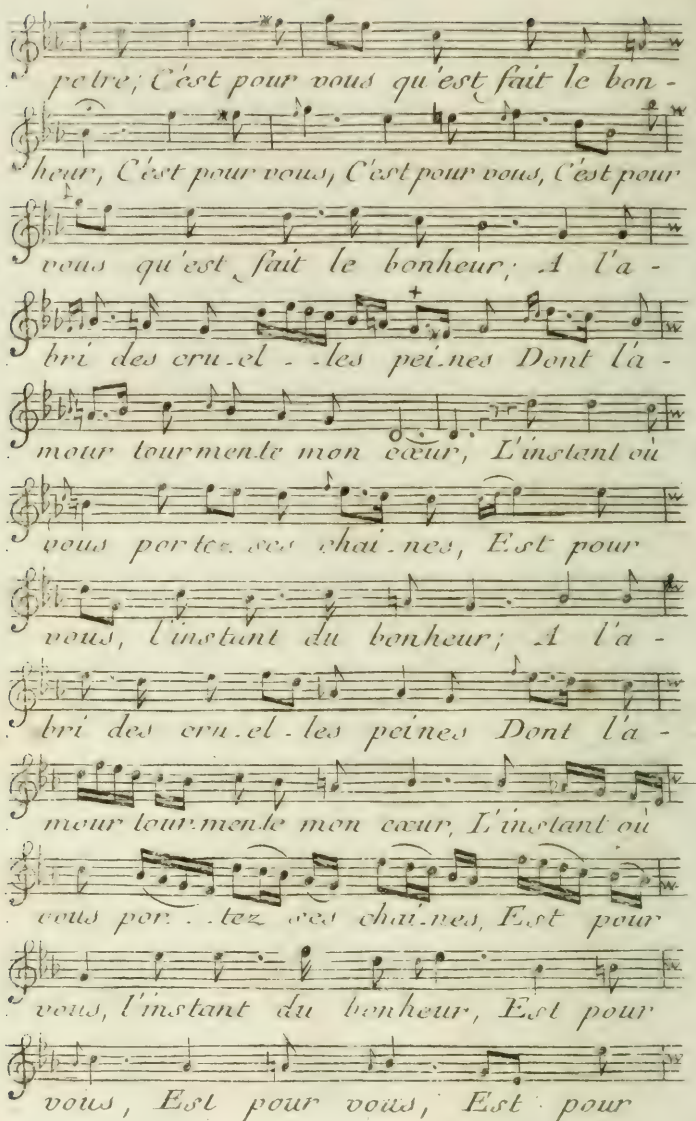 petre; C'est pour vous qu'est fait le bon-
heur, C'est pour vous, C'est pour vous, C'est pour
vous qu'est fait le bonheur; A l'a-
bri des cru-el-les peines Dont l'a-
mour tourmente mon cœur, L'instant où
vous portez ses chai-nes, Est pour
vous, l'instant du bonheur; A l'a-
bri des cru-el-les peines Dont l'a-
mour tour-mente mon cœur, L'instant où
vous por...tez ses chai-nes, Est pour
vous, l'instant du bonheur, Est pour
vous, Est pour vous, Est pour